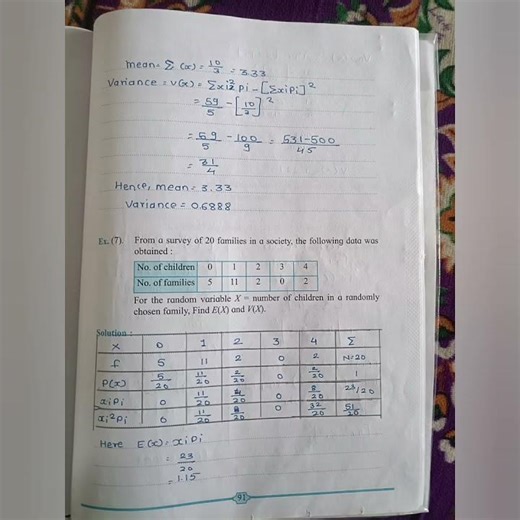 mean = Σ (x) = 10/3 = 3.33
Variance = V(x) = Σxi²pi - [Σxipi]²
= 59/5 - [10/3]²
= 59/5 - 100/9 = 531-500/45
= 31/4
Hence, mean = 3.33
Variance = 0.6888
Ex. (7). From a survey of 20 families in a society, the following data was
obtained :
No. of children 0 1 2 3 4
No. of families 5 11 2 0 2
For the random variable X = number of children in a randomly
chosen family, Find E(X) and V(X).
Solution :
X 0 1 2 3 4 Σ
f 5 11 2 0 2 N=20
P(x) 5/20 11/20 2/20 0 2/20 1
xipi 0 11/20 4/20 0 8/20 23/20
xi²pi 0 11/20 8/20 0 32/20 51/20
Here E(x) = xipi
= 23/20
= 1.15
91